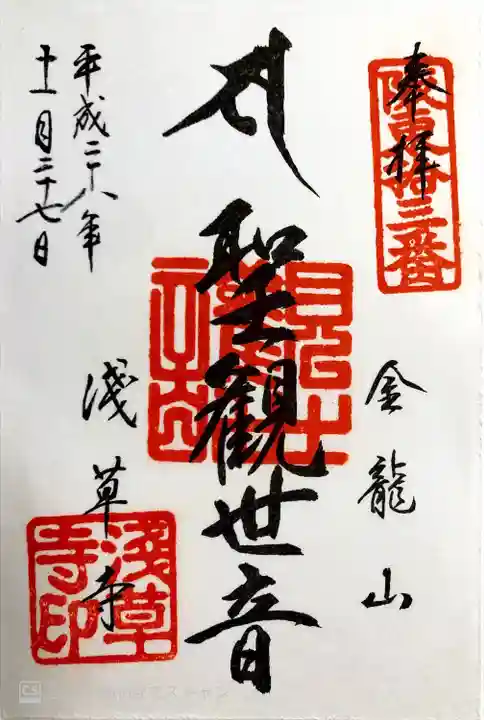 奉拝
坂東拾三番
金龍山
聖観世音
淺草寺
淺草寺印
平成二十八年
十一月二十七日
CS